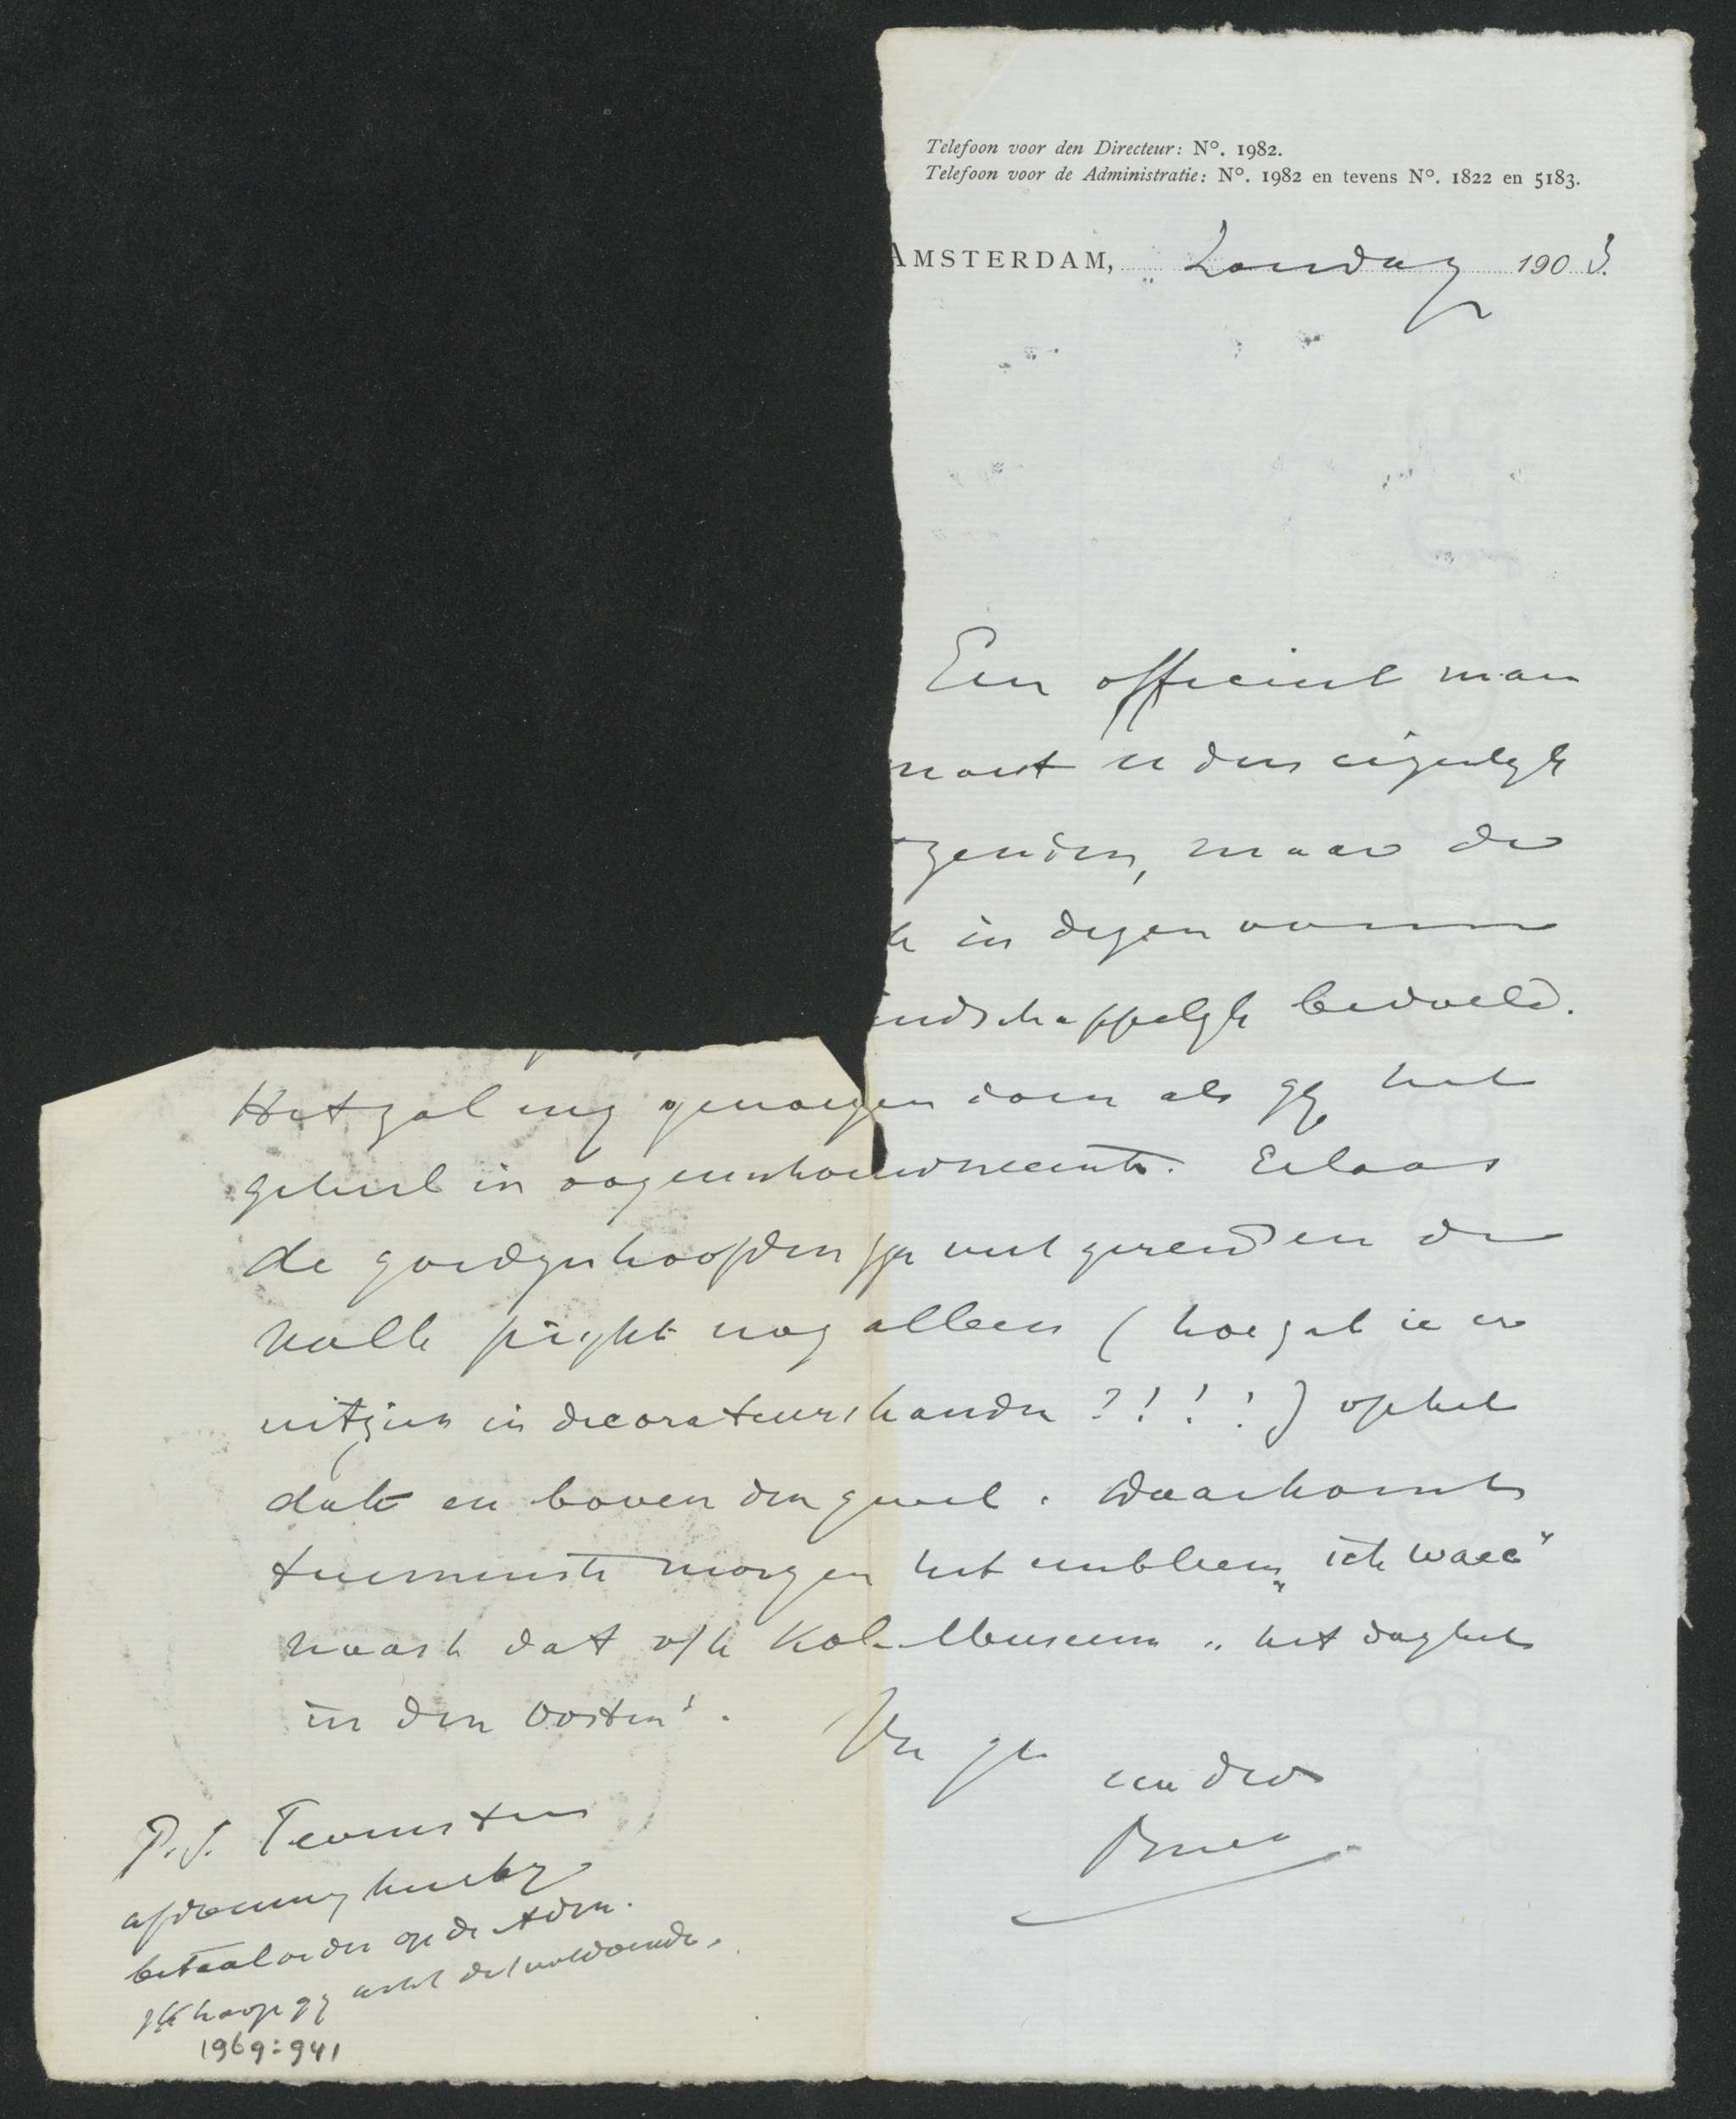 Telefoon voor den Directeur: Nº. 1982.
Telefoon voor de Administratie: Nº. 1982 en tevens Nº. 1822 en 5183.
AMSTERDAM, Zondag 1903.
Een officieel man
moest u dus eigenlijk
zenden, maar de
in dezen
endschappelijk bedoeld.
Het zal mij genoegen doen als gij het
geheel in oogenschouw neemt. Helaas
de goudgekoofden zijn niet gereed en de
valk prijkt nog alleen (hoe zal ie er
uitzien in decorateurshanden ?!!!) op het
dak en boven den gevel. Daar komt
tenminste morgen het embleem „ick waec"
naast dat v/h Kol. Museum „het daghet
in den Oosten".
Uw
andere
P.S. Tevens
afrekening hierbij
betaalorder op de Adm.
Ik hoop gij acht dit voldoende.
1969:941